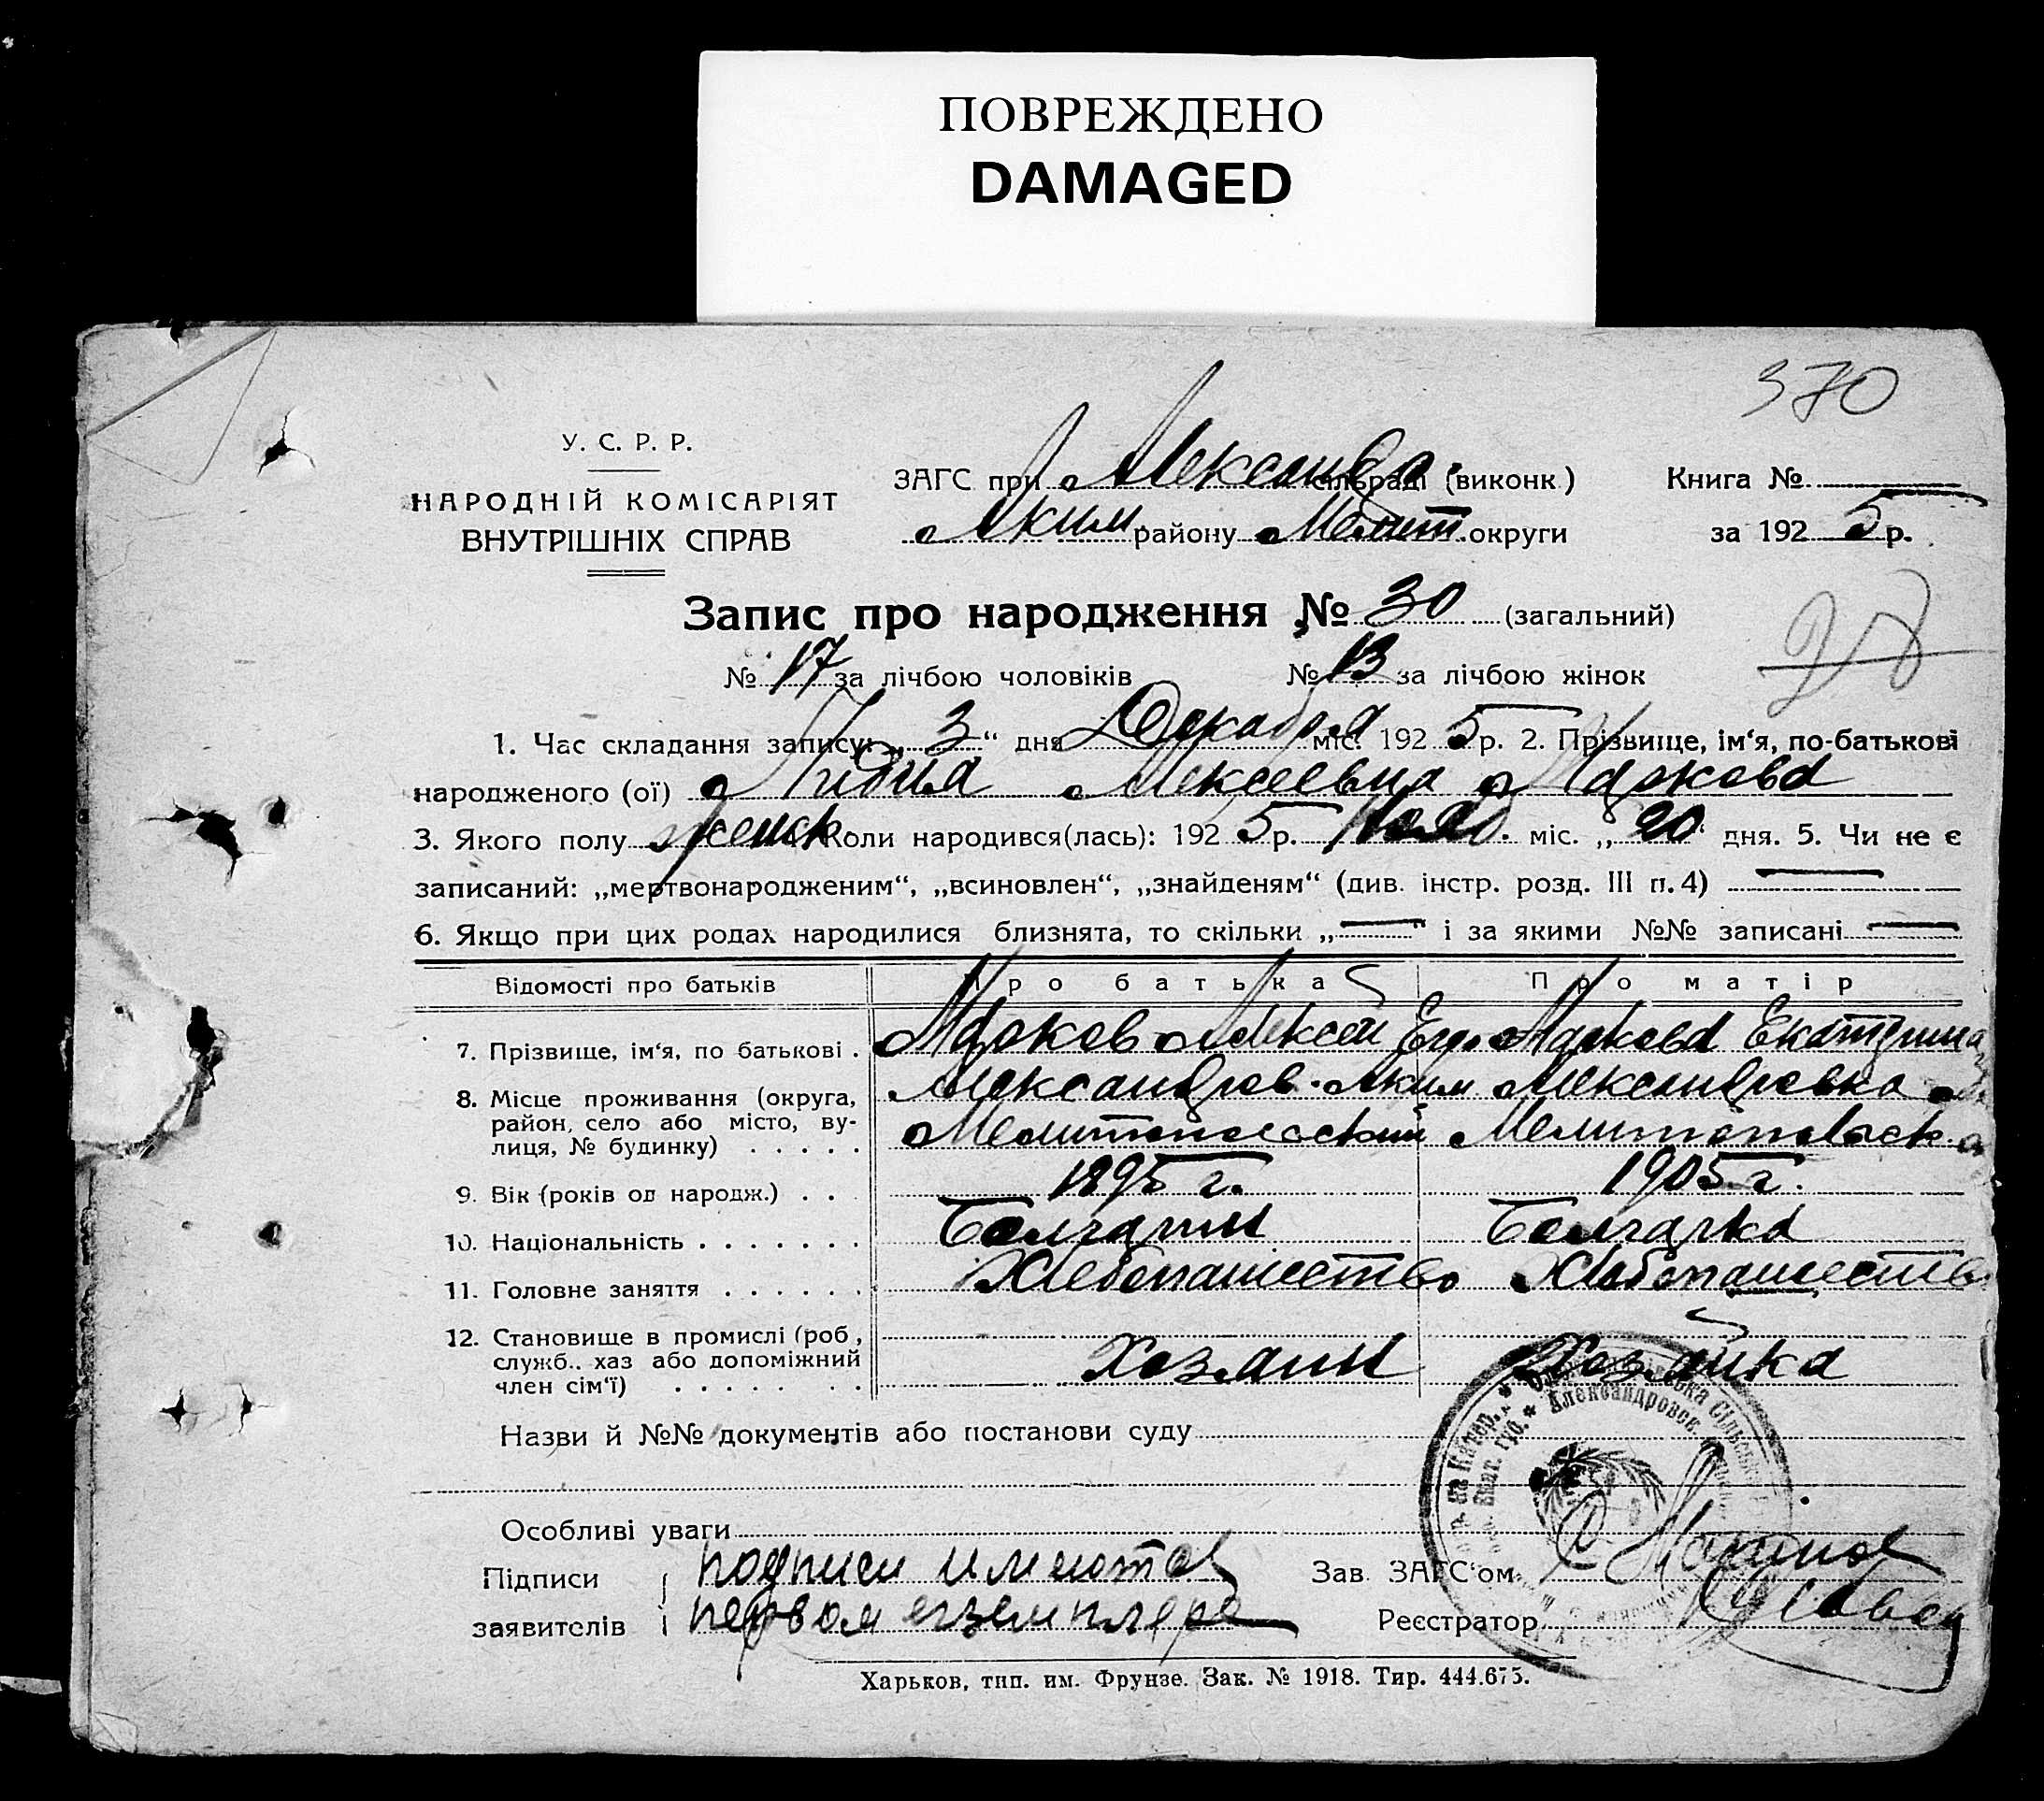 ПОВРЕЖДЕНО
DAMAGED
370
У. С. Р. Р.
НАРОДНІЙ КОМІСАРІЯТ
ВНУТРІШНІХ СПРАВ
ЗАГС при Александр. сільраді (виконк.)
Аким. району Мелит. округи
Книга №
за 1925 р.
Запис про народження № 30 (загальний)
№ 17 за лічбою чоловіків № 13 за лічбою жінок
1. Час складання запису: „3“ дня Декабря міс. 1925 р. 2. Прізвище, ім‘я, по-батькові
народженого (ої) Лидия Алексеевна Маркова
3. Якого полу женск. Коли народився(лась): 1925 р. Нояб. міс. „20“ дня. 5. Чи не є
записаний: „мертвонародженим“, „всиновлен“, „знайденям“ (див. інстр. розд. III п. 4) —
6. Якщо при цих родах народилися близнята, то скільки „—“ і за якими №№ записані —
Відомості про батьків Про батька Про матір
7. Прізвище, ім‘я, по батькові . Марков Алексей Егор Маркова Екатерина
8. Місце проживання (округа, Александров. Аким Александровка
район, село або місто, ву-
лиця, № будинку) . . . . . Мелитопольский Мелитопольск
9. Вік (років од народж.) . . . 1895 г. 1905 г.
10. Національність . . . . . . . Болгарин Болгарка
11. Головне заняття . . . . . . Хлебопашество Хлебопашество
12. Становище в промислі (роб.,
служб.. хаз або допоміжний Хозяин Хозяйка
член сім‘ї) . . . . . . .
Назви й №№ документів або постанови суду
Особливі уваги
Підписи подписи имеются
заявителів первом егземпляре
Зав. ЗАГС‘ом
Реєстратор
Харьков, тип. им. Фрунзе. Зак. № 1918. Тир. 444.675.